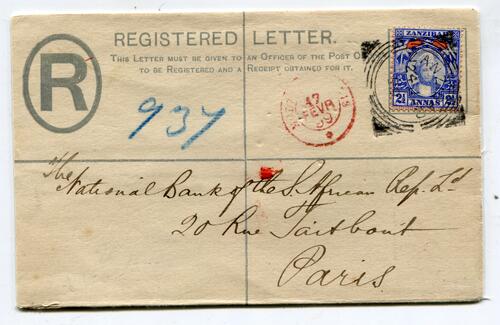 REGISTERED LETTER.
THIS LETTER MUST BE GIVEN TO AN OFFICER OF THE POST OF
TO BE REGISTERED AND A RECEIPT OBTAINED FOR IT.
R
ZANZIBAR
2½ ANNAS 2½
937
17
FEVR
99
The
National Bank of the S. African Rep. Ld
20 Rue Taitbout
Paris